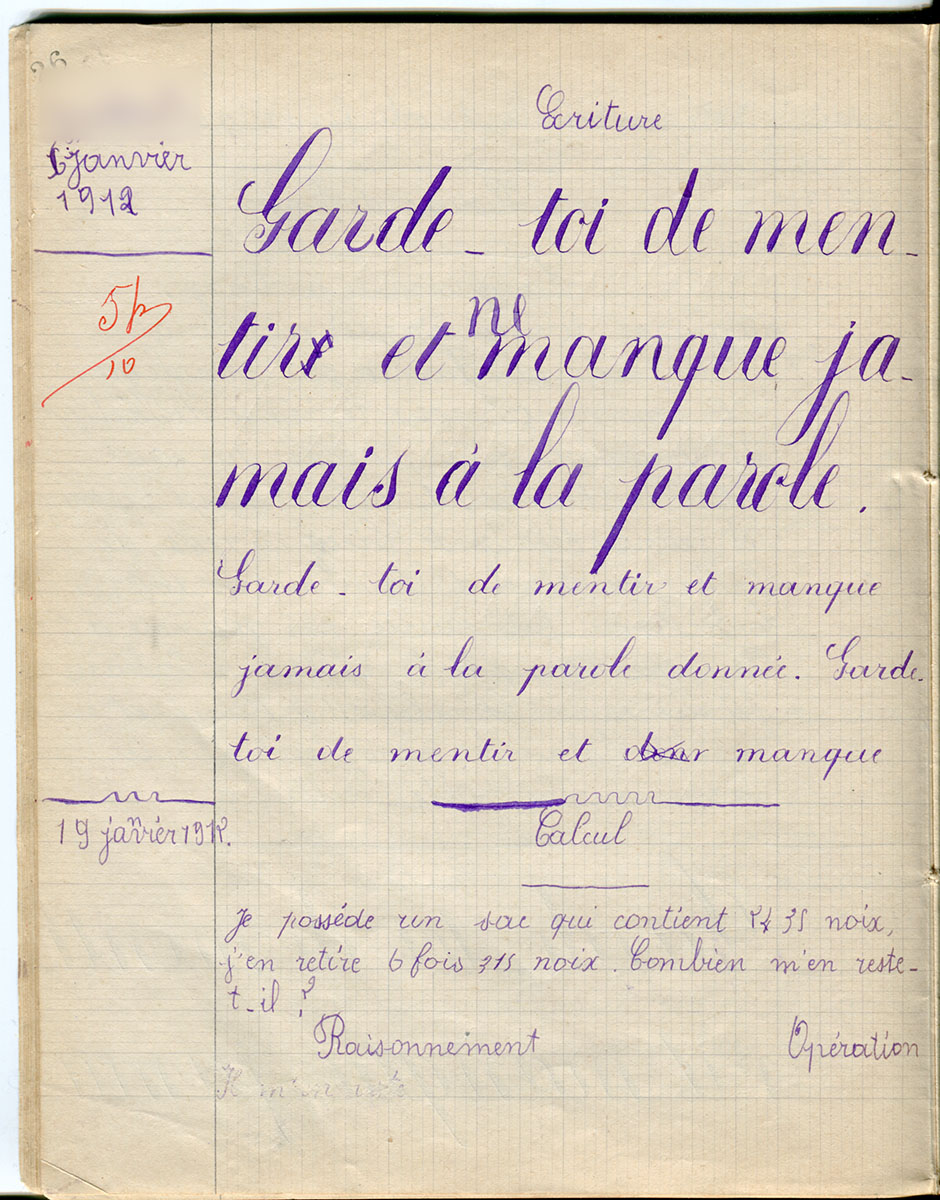 Ecriture
janvier
1912
Garde-toi de men-
tir et ne manque ja-
mais à la parole.
5 1/2
10
Garde-toi de mentir et manque
jamais à la parole donnée. Garde-
toi de mentir et manque
19 janvier 1912.
Calcul
Je posséde un sac qui contient 2435 noix,
j'en retire 6 fois 315 noix. Combien m'en reste-
t-il ?
Raisonnement Opération
Il m'en reste